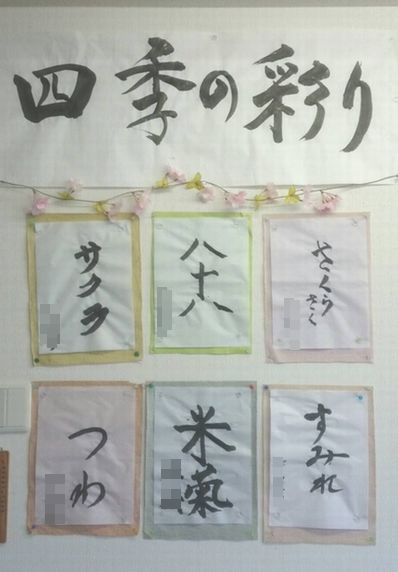 四季の彩り
サクラ
八十八
さくら
さく
つわ
米菊
すみれ